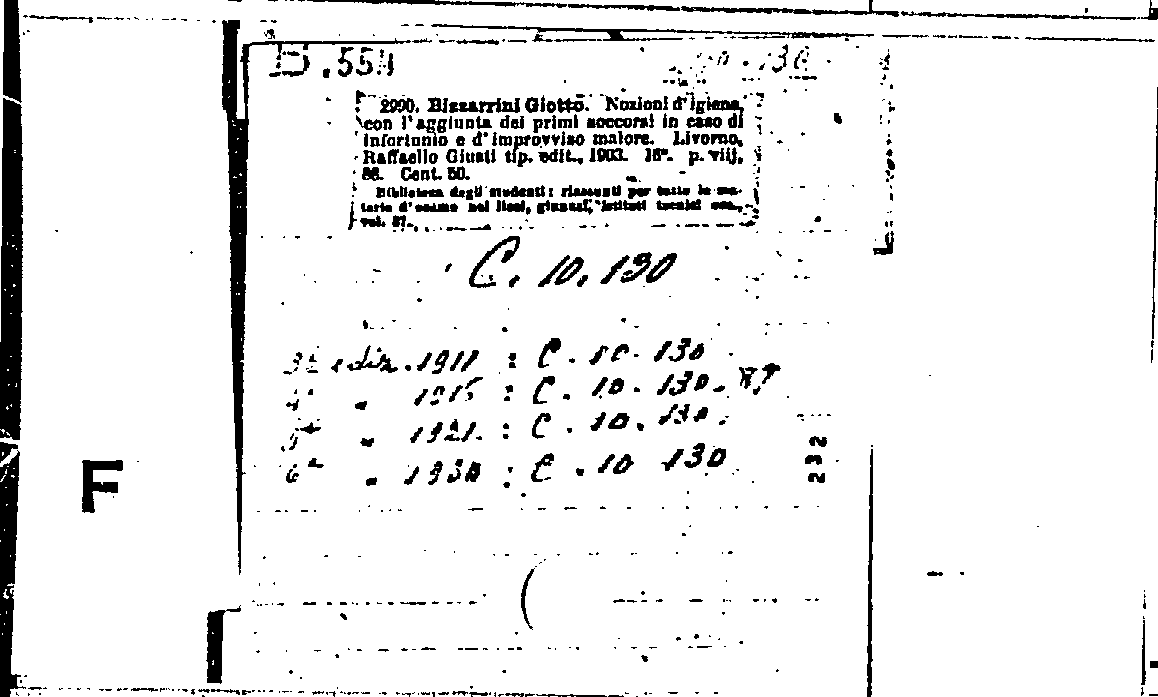 D.554
2990. Bizzarrini Giotto. Nozioni d'igiene,
con l'aggiunta dei primi soccorsi in caso di
infortunio e d'improvviso malore. Livorno,
Raffaello Giusti tip. edit., 1903. 16°. p. viij,
86. Cent. 50.
Biblioteca degli studenti: riassunti per tutte le ma-
terie d'esame nei licei, ginnasi, istituti tecnici ecc.,
vol. 87.
C. 10. 130
3ª ediz. 1911 : C. 10. 130
4ª " 1915 : C. 10. 130. 87
5ª " 1921. : C. 10. 130.
6ª " 1930 : C. 10 130
232
F